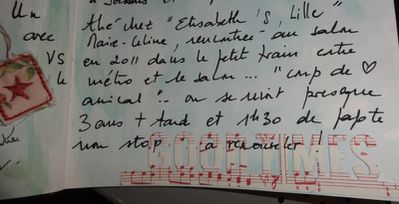 Un
avec
VS
le
Thé chez "Elisabeth's, Lille"
Marie-Celine, rencontrée au salon
en 2011 dans le petit train entre
métro et le salon... "coup de ♡
amical"... on se revoit presque
3 ans + tard et 1h30 de papote
non stop... a renouveler !
GOOD TIMES